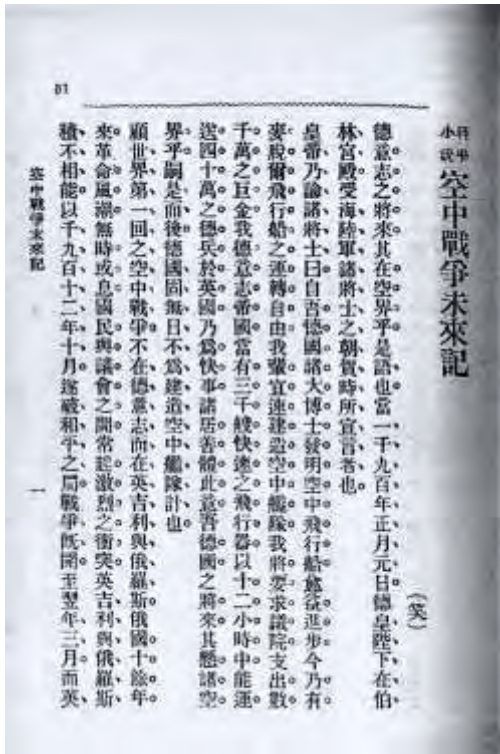 科學小說 空中戰爭未來記
(笑)
德意志之將來其在空界乎是語也當一千九百年正月元日德皇陛下在伯
林宮殿受海陸軍諸將士之朝賀時所宣言者也
皇帝乃諭諸將士曰自吾德國諸大博士發明空中飛行船艦益進步今乃有
麥脫爾飛行船之運轉自由我輩宜速建造空中艦隊我將要求議院支出數
千萬之巨金我德意志帝國當有三千艘快速之飛行器以十二小時中能運
送四十萬之德兵於英國乃爲快事諸居善體此意吾德國之將來其懸諸空
界乎嗣是而後德國固無日不爲建造空中艦隊計也
顧世界第一回之空中戰爭不在德意志而在英吉利與俄羅斯俄國十餘年
來革命風潮無時或息國民與議會之間常起激烈之衝突英吉利與俄羅斯
積不相能以千九百十二年十月遂破和平之局戰爭旣開至翌年三月而英
空中戰爭未來記
一
81